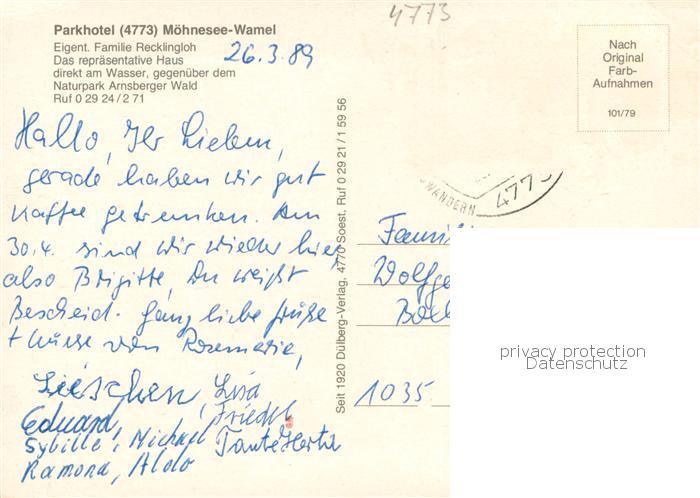 4773
Parkhotel (4773) Möhnesee-Wamel
Eigent. Familie Recklingloh
Das repräsentative Haus
direkt am Wasser, gegenüber dem
Naturpark Arnsberger Wald
Ruf 0 29 24 / 2 71
26.3.89
Hallo, Ihr Lieben,
gerade haben wir gut
Kaffee getrunken. Am
30.4. sind wir wieder hier,
also Brigitte, Du weißt
Bescheid. Ganz liebe Grüße
+ Küsse von Rosemarie,
Lieschen, Lisa
Eduard, Friedel
Sybille, Michael Tante Herta
Ramona, Aldo
Seit 1920 Dülberg-Verlag, 4770 Soest, Ruf 0 29 21 / 1 59 56
Nach
Original
Farb-
Aufnahmen
101/79
WANDERN 477
Famil
Wolfga
1035
privacy protection
Datenschutz